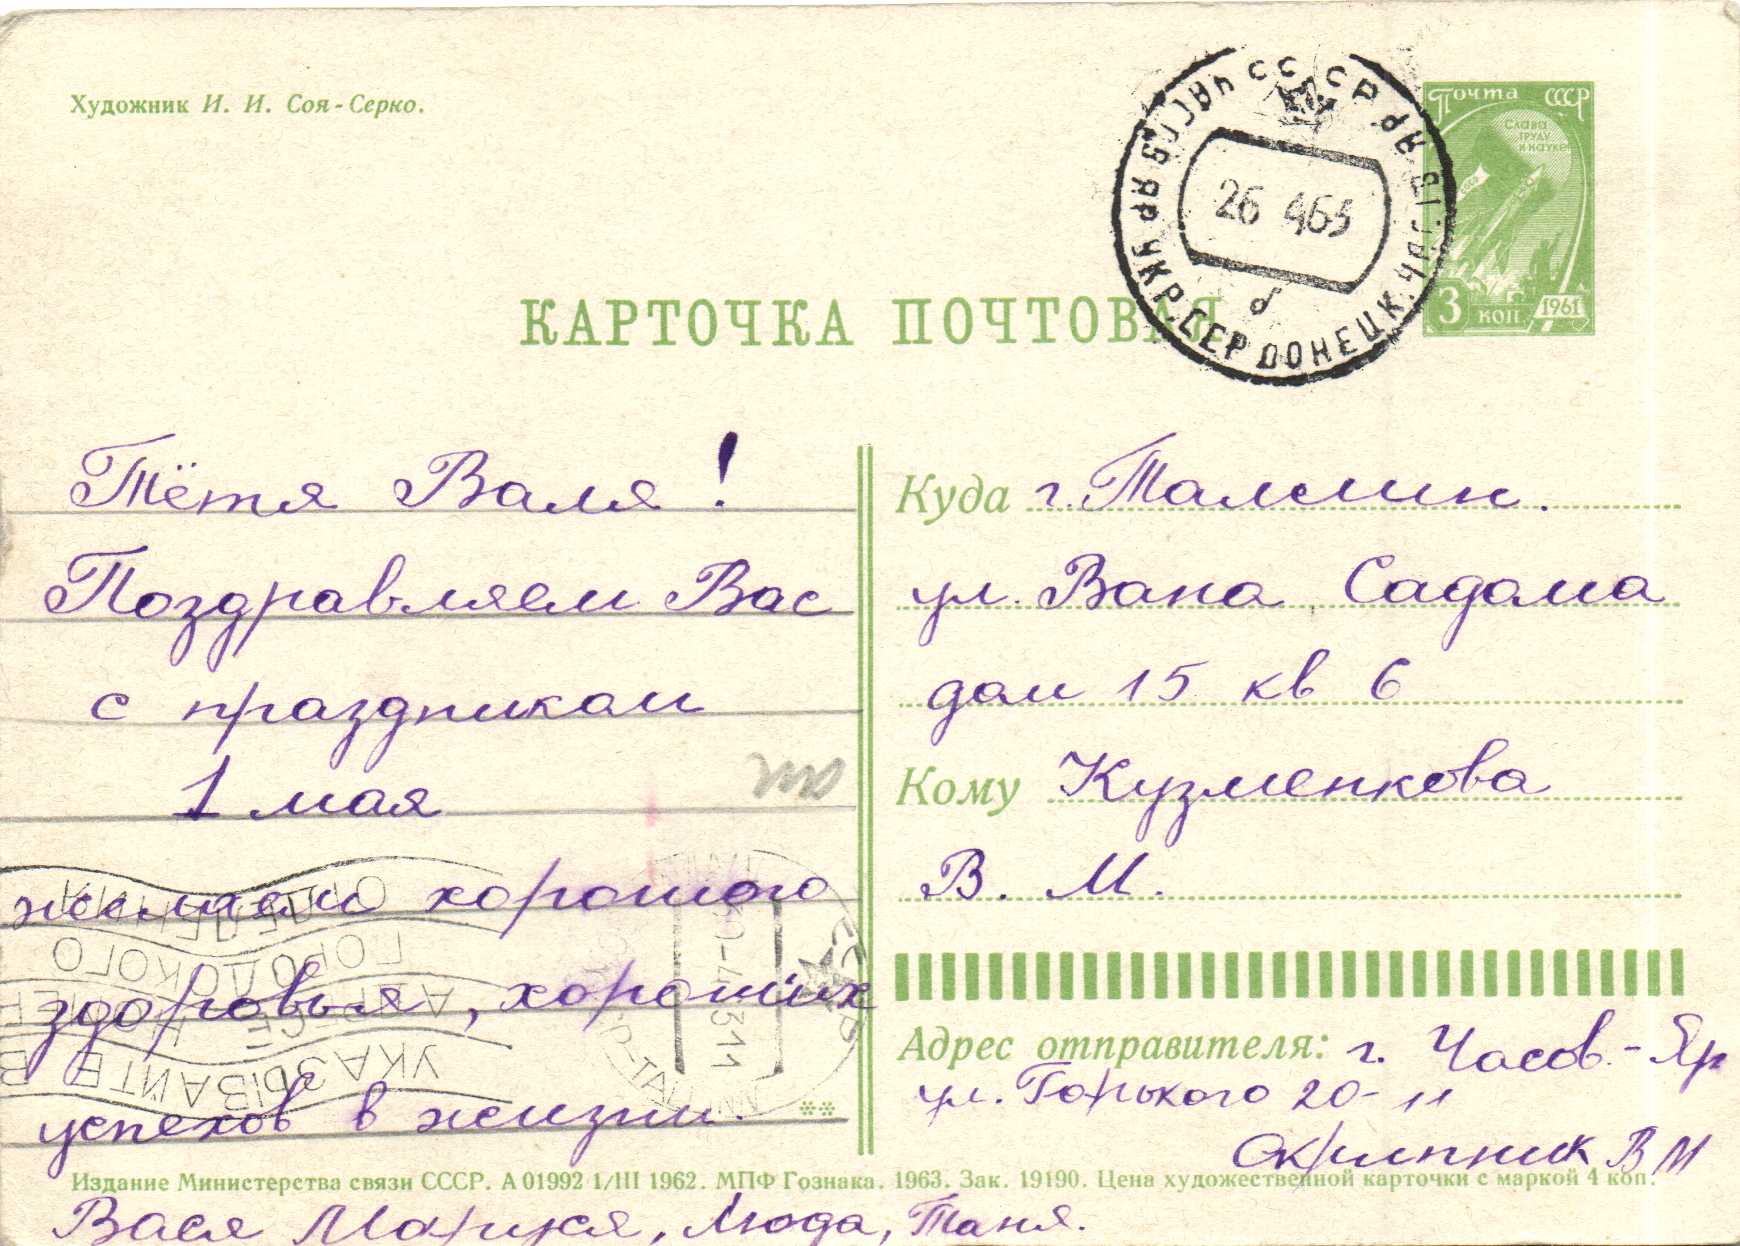 Художник И. И. Соя-Серко.
Почта СССР
Слава
труду
и науке
3 коп. 1961
26 4 63
УКР. ССР ДОНЕЦК.
КАРТОЧКА ПОЧТОВАЯ
Тётя Валя!
Поздравляем Вас
с праздником
1 мая
желаем хорошего
здоровья, хороших
успехов в жизни.
Вася Маруся, Люда, Таня.
Куда г. Таллин.
ул. Вана Садама
дом 15 кв 6
Кому Кузменкова
В. М.
Адрес отправителя: г. Часов-Яр
ул. Горького 20-11
Скрипник ВМ
УКАЗЫВАЙТЕ В
АДРЕСЕ
ГОРОДСКОГО
ОТДЕЛЕНИЯ
Издание Министерства связи СССР. А 01992 1/III 1962. МПФ Гознака. 1963. Зак. 19190. Цена художественной карточки с маркой 4 коп.